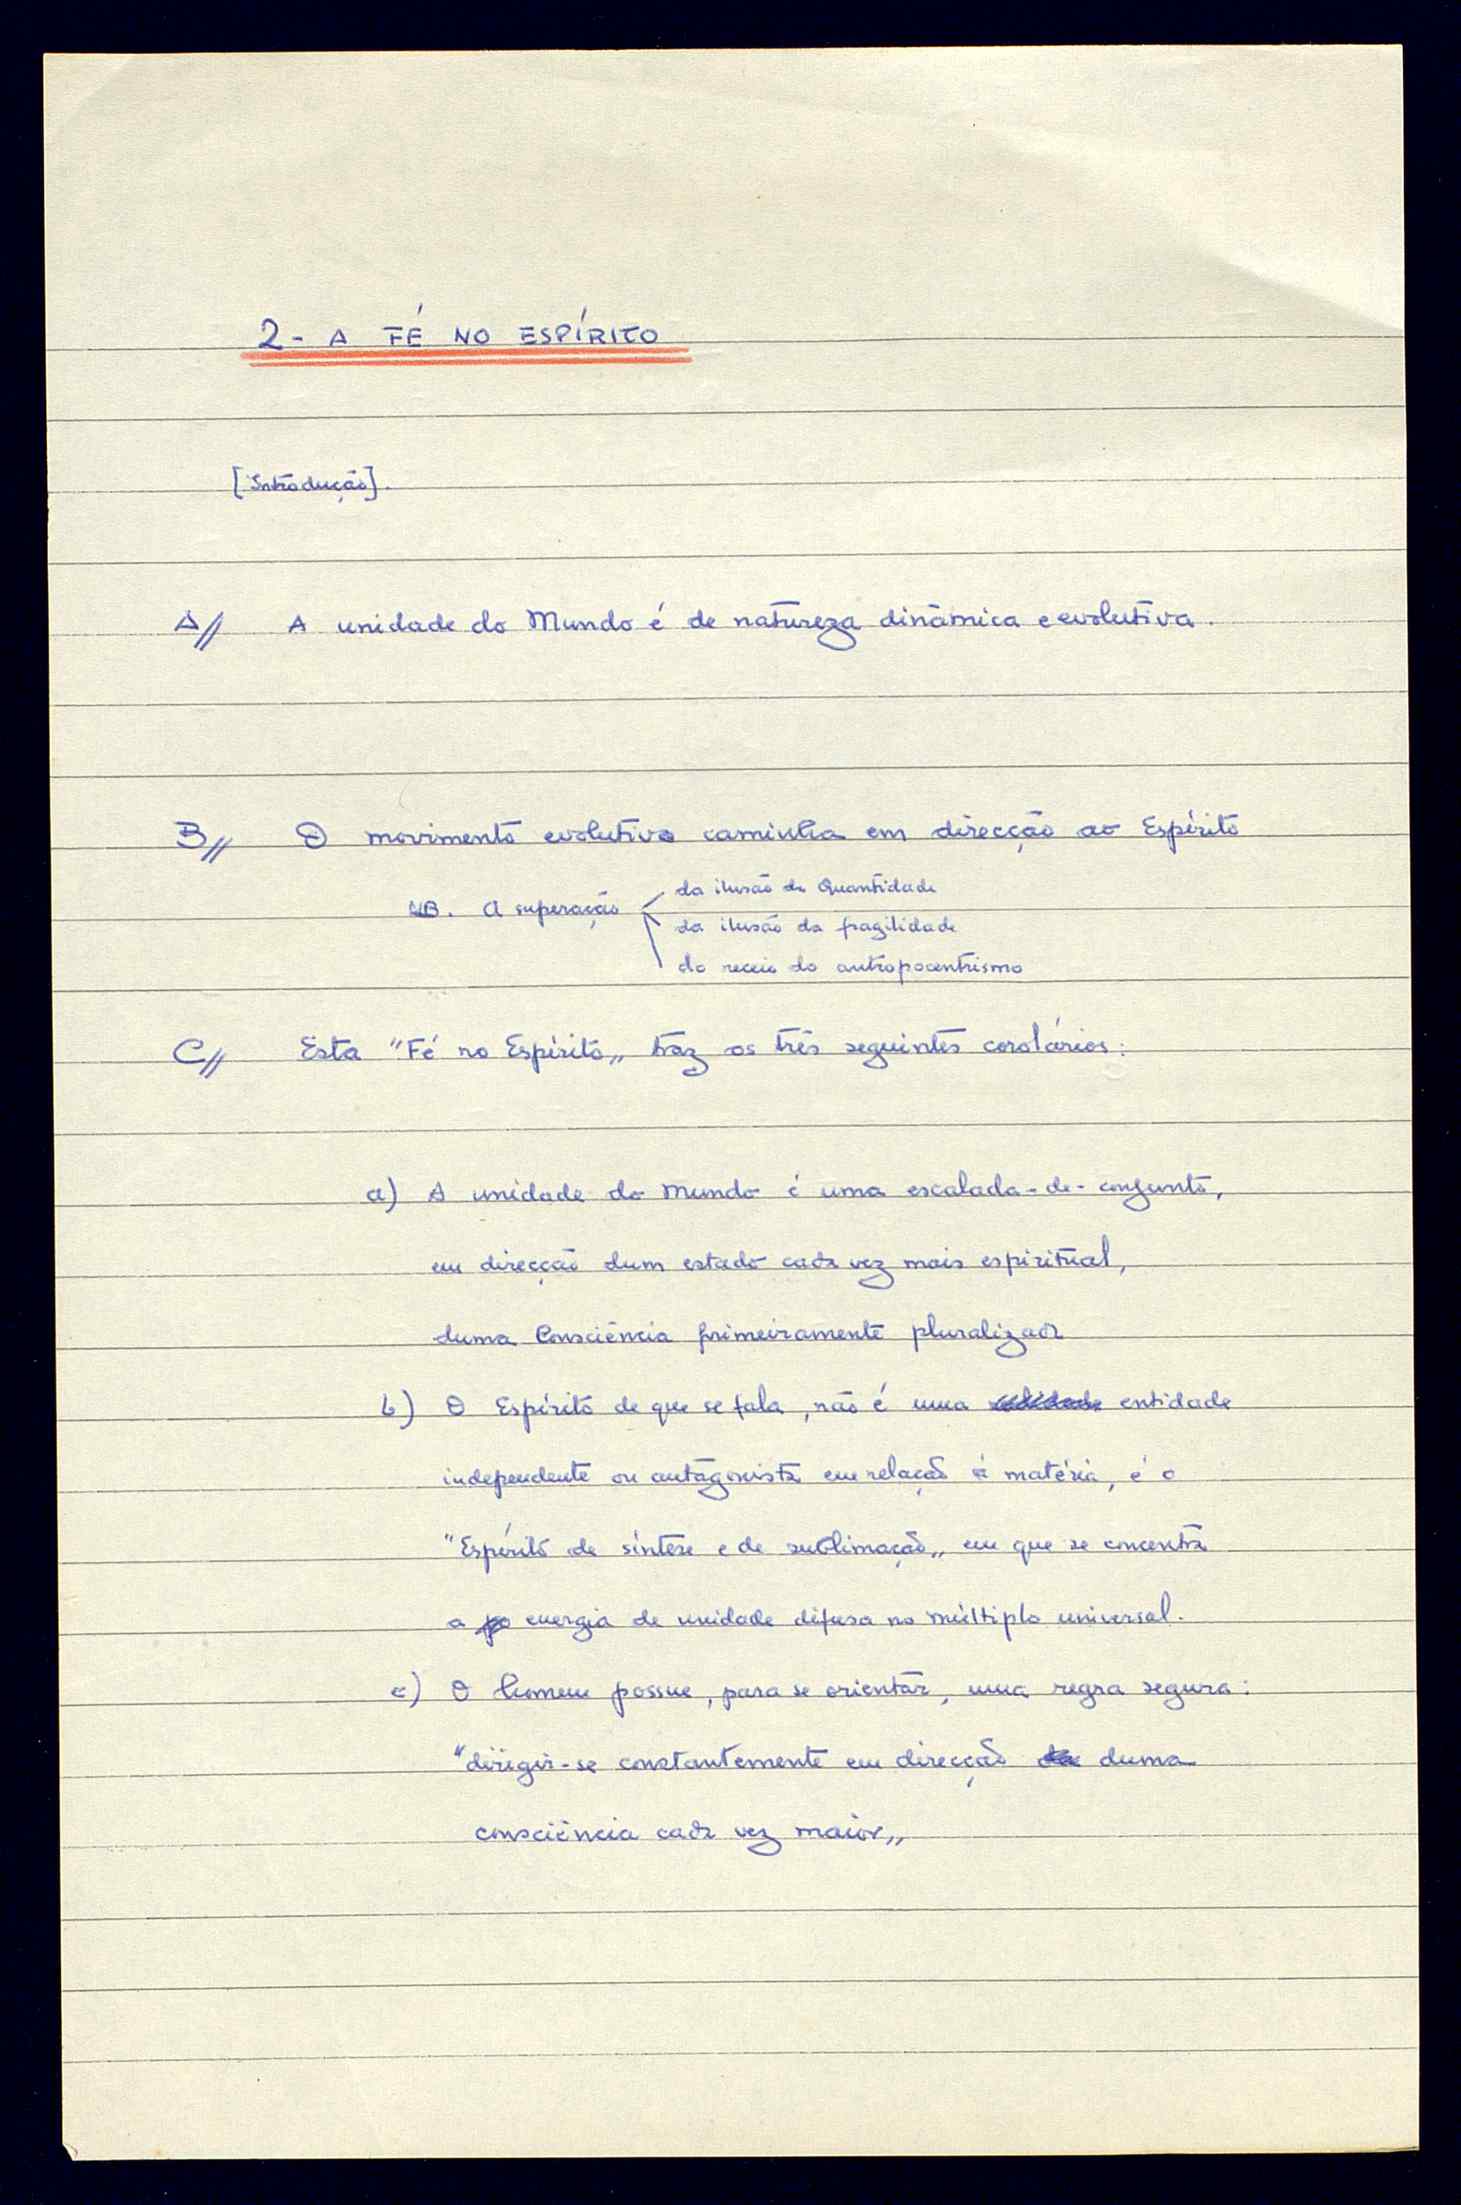 2 - A FÉ NO ESPÍRITO
[Introdução].
A// A unidade do Mundo é de natureza dinâmica e evolutiva.
B// O movimento evolutivo caminha em direcção ao Espírito
da ilusão da Quantidade
NB. A superação
da ilusão da fragilidade
do receio do antropocentrismo
C// Esta "Fé no Espírito„ traz os três seguintes corolários:
a) A unidade do Mundo é uma escalada-de-conjunto,
em direcção dum estado cada vez mais espiritual,
duma Consciência primeiramente pluralizada
b) O Espírito de que se fala, não é uma entidade
independente ou antagonista em relação à matéria, é o
"Espírito de síntese e de sublimação„ em que se concentra
a energia de unidade difusa no múltiplo universal.
c) O homem possue, para se orientar, uma regra segura:
"dirigir-se constantemente em direcção duma
consciência cada vez maior„